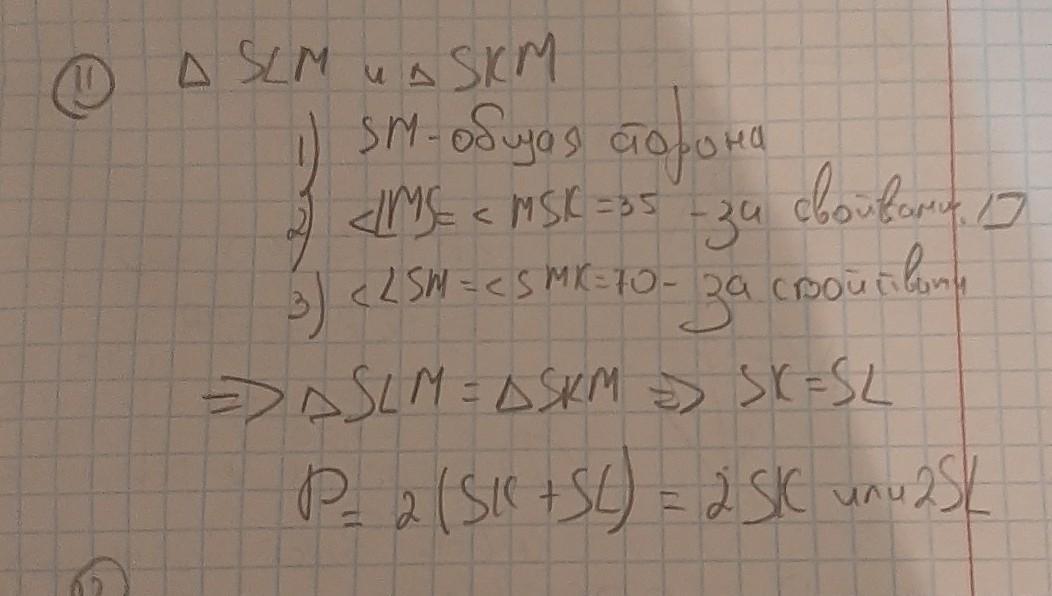 11 △ SLM и △ SKM
1) SM - общая сторона
2) <LMS = < MSK = 35 - за свойствами ▱
3) <LSM = <SMK = 70 - за свойствами
=> △ SLM = △ SKM => SK = SL
P = 2(SK + SL) = 2SK или 2SL